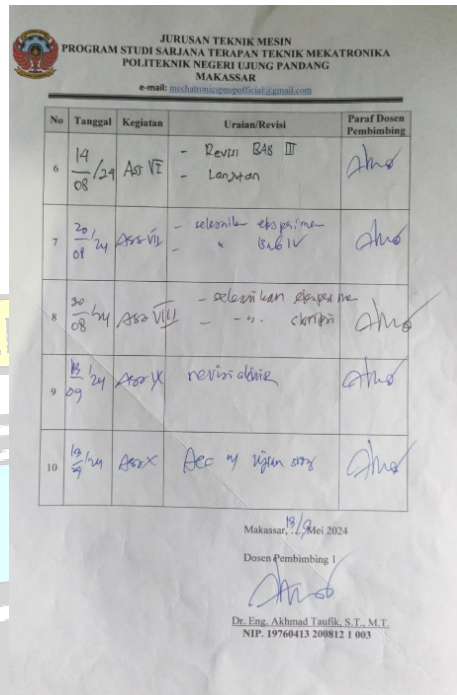 JURUSAN TEKNIK MESIN
PROGRAM STUDI SARJANA TERAPAN TEKNIK MEKATRONIKA
POLITEKNIK NEGERI UJUNG PANDANG
MAKASSAR
e-mail: mechatronicspnupofficial@gmail.com
No Tanggal Kegiatan Uraian/Revisi Paraf Dosen Pembimbing
6 14/08/24 Ass VI - Revisi BAB III
- Lanjutan
7 20/08/24 Ass VII - selesaikan eksperimen
- " BAB IV
8 30/08/24 Ass VIII - selesaikan eksperimen
- -"-
9 09/24 Ass IX revisi
10 /24 Ass X Acc ujian
Makassar, Mei 2024
Dosen Pembimbing 1
Dr. Eng. Akhmad Taufik, S.T., M.T.
NIP. 19760413 200812 1 003